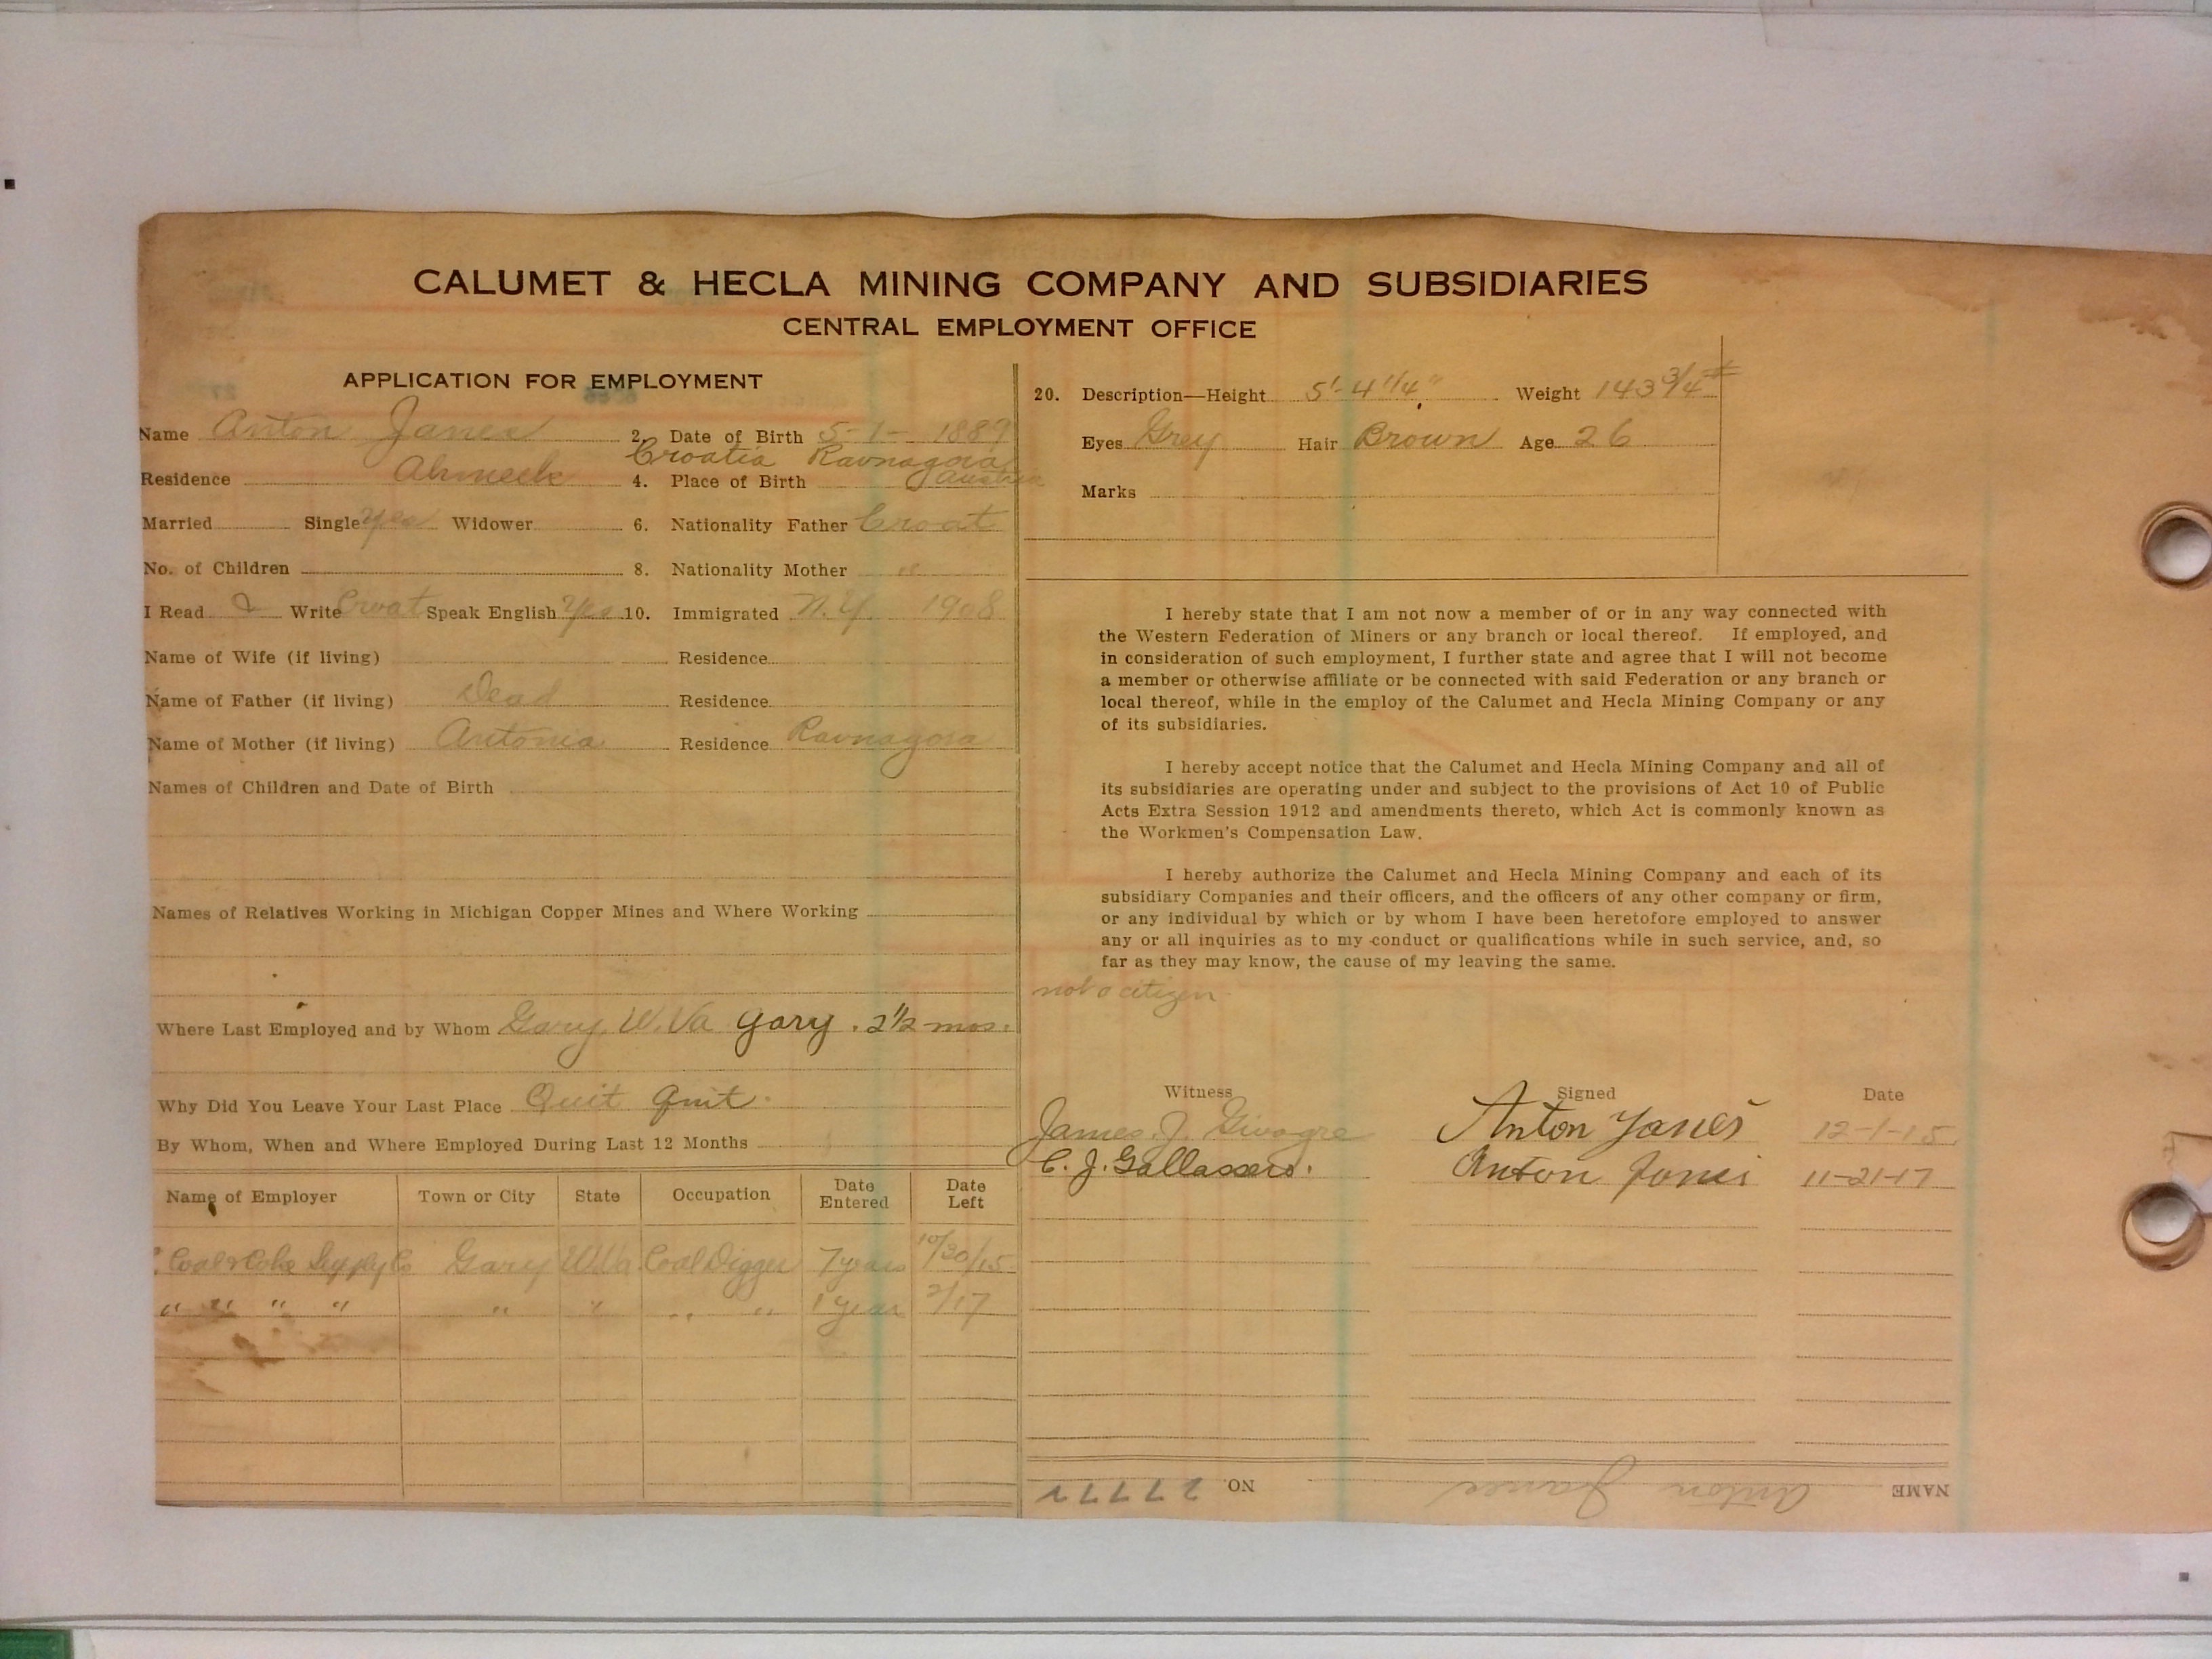 CALUMET & HECLA MINING COMPANY AND SUBSIDIARIES
CENTRAL EMPLOYMENT OFFICE
APPLICATION FOR EMPLOYMENT
Name Anton Janes 2. Date of Birth 5-1-1889
Croatia Ravnagora
Residence Ahmeek 4. Place of Birth Austria
Married Single Yes Widower 6. Nationality Father Croat
No. of Children 8. Nationality Mother "
I Read & Write Croat Speak English Yes 10. Immigrated N.Y. 1908
Name of Wife (if living) Residence
Name of Father (if living) Dead Residence
Name of Mother (if living) Antonia Residence Ravnagora
Names of Children and Date of Birth
Names of Relatives Working in Michigan Copper Mines and Where Working
Where Last Employed and by Whom Gary W.Va Gary. 2 1/2 mos.
Why Did You Leave Your Last Place Quit Quit.
By Whom, When and Where Employed During Last 12 Months
Name of Employer Town or City State Occupation Date Entered Date Left
Coal & Coke Supply Co Gary W.Va Coal Digger 7 years 10/30/15
" " " " " " " " 1 year 2/17
20. Description—Height 5'-4 1/4" Weight 143 3/4 #
Eyes Grey Hair Brown Age 26
Marks
I hereby state that I am not now a member of or in any way connected with
the Western Federation of Miners or any branch or local thereof. If employed, and
in consideration of such employment, I further state and agree that I will not become
a member or otherwise affiliate or be connected with said Federation or any branch or
local thereof, while in the employ of the Calumet and Hecla Mining Company or any
of its subsidiaries.
I hereby accept notice that the Calumet and Hecla Mining Company and all of
its subsidiaries are operating under and subject to the provisions of Act 10 of Public
Acts Extra Session 1912 and amendments thereto, which Act is commonly known as
the Workmen's Compensation Law.
I hereby authorize the Calumet and Hecla Mining Company and each of its
subsidiary Companies and their officers, and the officers of any other company or firm,
or any individual by which or by whom I have been heretofore employed to answer
any or all inquiries as to my conduct or qualifications while in such service, and, so
far as they may know, the cause of my leaving the same.
not a citizen
Witness Signed Date
James. J. Anton Yanes 12-1-15
C. J. Anton Jones 11-21-17
NAME Anton Janes NO. 27772